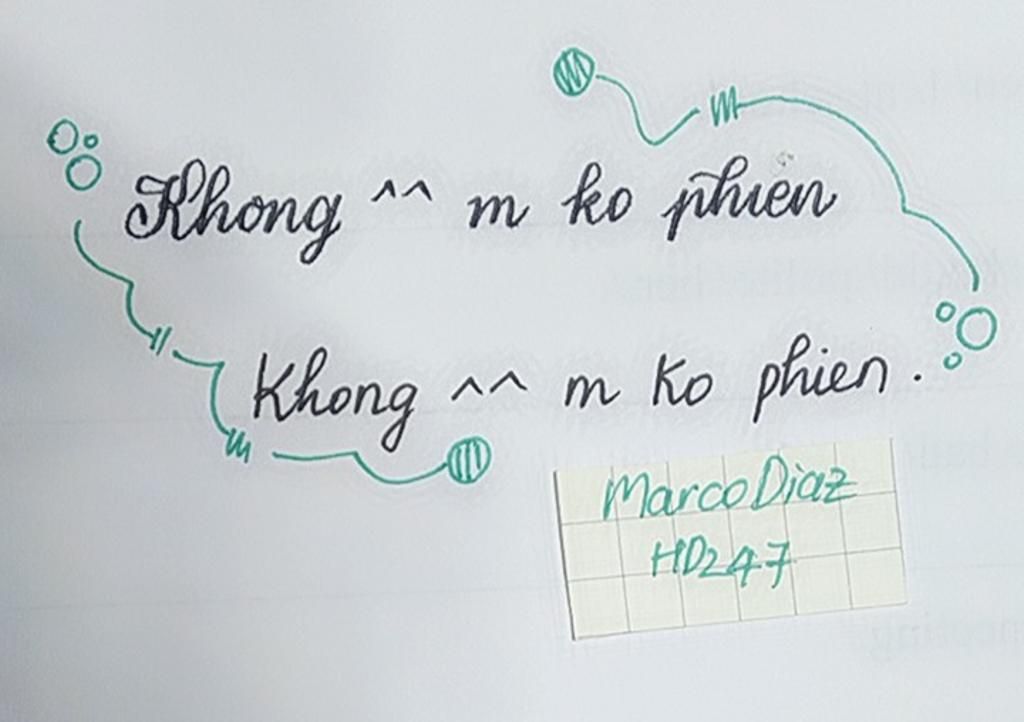 Khong ^^ m ko phien
Khong ^^ m ko phien.
MarcoDiaz
HD247